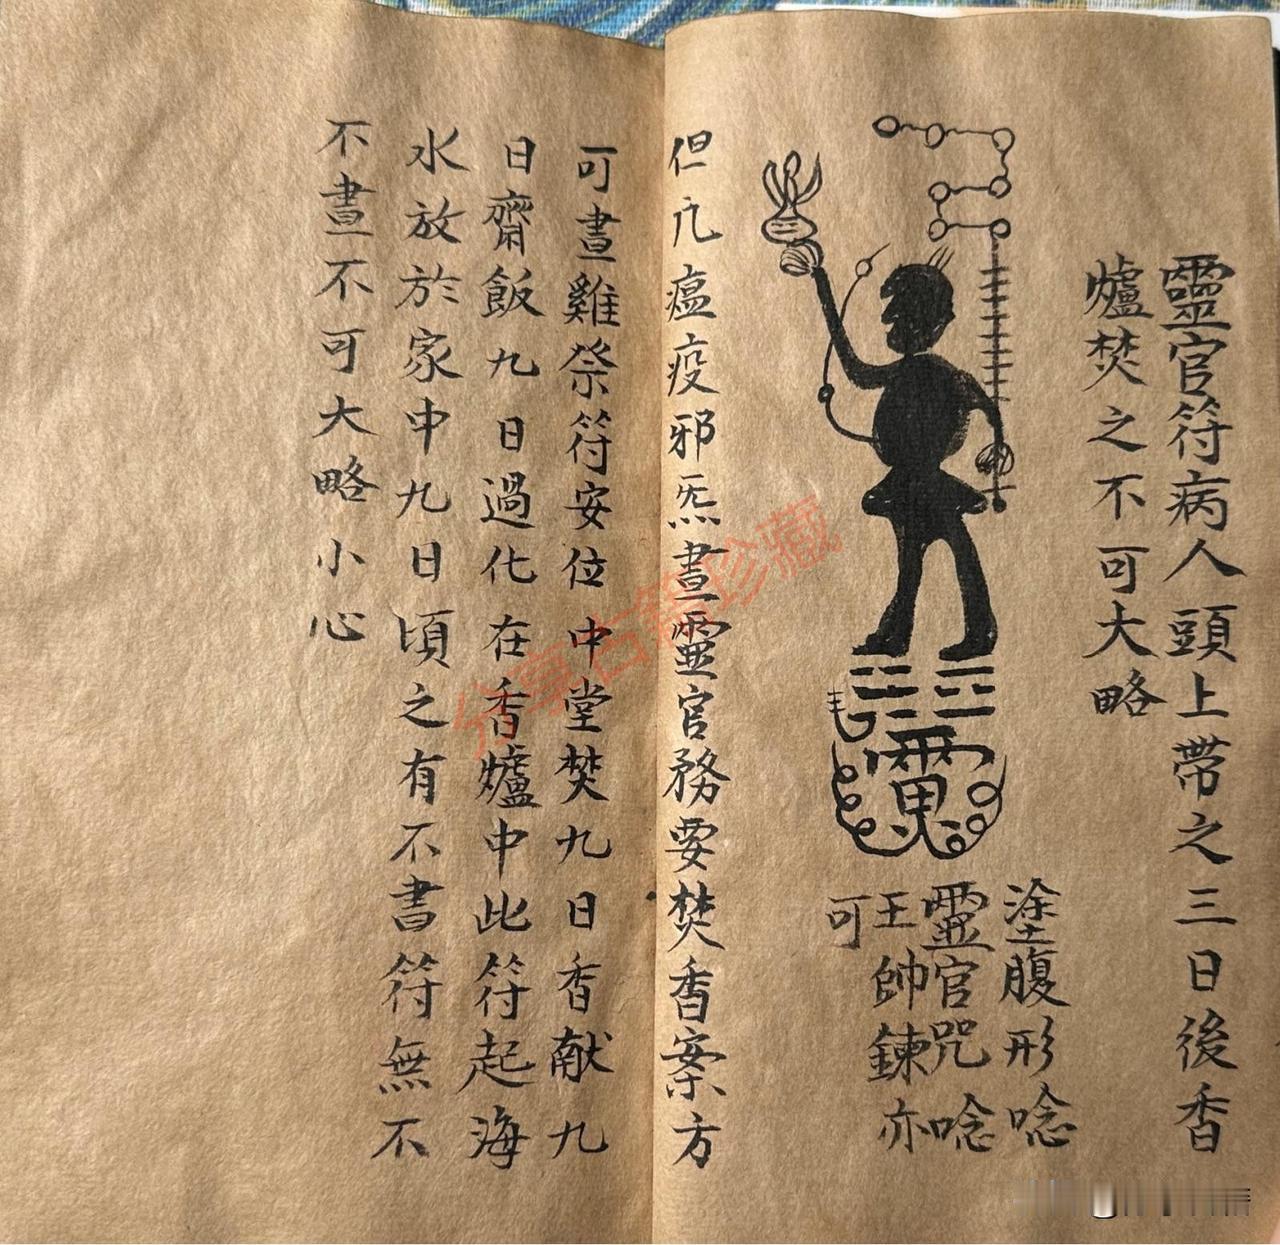 靈官符病人頭上带之三日後香
爐焚之不可大略
塗腹形唸
靈官咒唸
王帥鍊亦
可
但凢瘟疫邪炁畫靈官務要焚香案方
可畫雞祭符安位中堂焚九日香献九
日齋飯九日過化在香爐中此符起海
水放於家中九日頃之有不書符無不
不畫不可大略小心
分享古籍珍藏